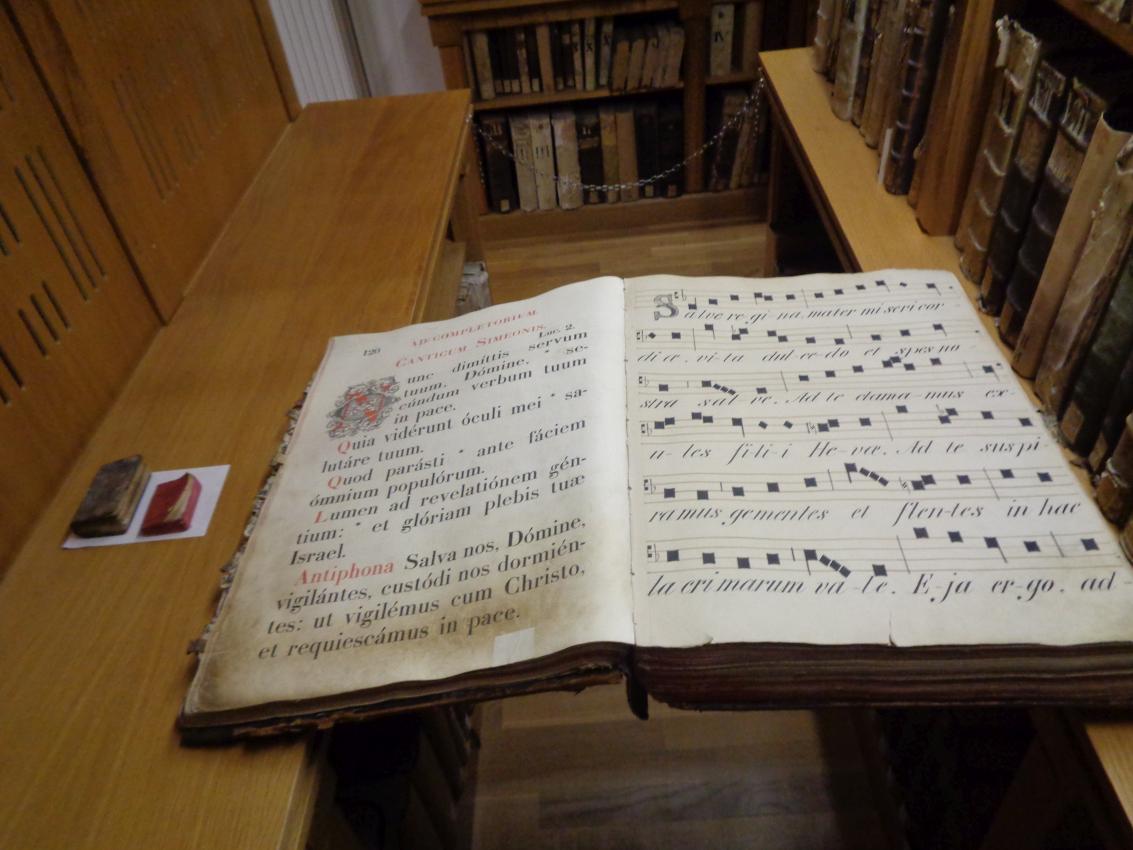 120
AD COMPLETORIUM
CANTICUM SIMEONIS. Luc. 2.
Nunc dimíttis servum
tuum, Dómine, * se-
cúndum verbum tuum
in pace.
Quia vidérunt óculi mei * sa-
lutáre tuum.
Quod parásti * ante fáciem
ómnium populórum.
Lumen ad revelatiónem gén-
tium: * et glóriam plebis tuæ
Israel.
Antiphona Salva nos, Dómine,
vigilántes, custódi nos dormién-
tes: ut vigilémus cum Christo,
et requiescámus in pace.
Salve re-gi-na, mater misericor
di æ. vi-ta dul-ce-do et spes no
stra sal-ve. Ad te clama-mus ex-
u-les fi-li-i He-væ. Ad te suspi
ramus gementes et flen-tes in hac
lacrimarum va-le. E-ja er-go, ad